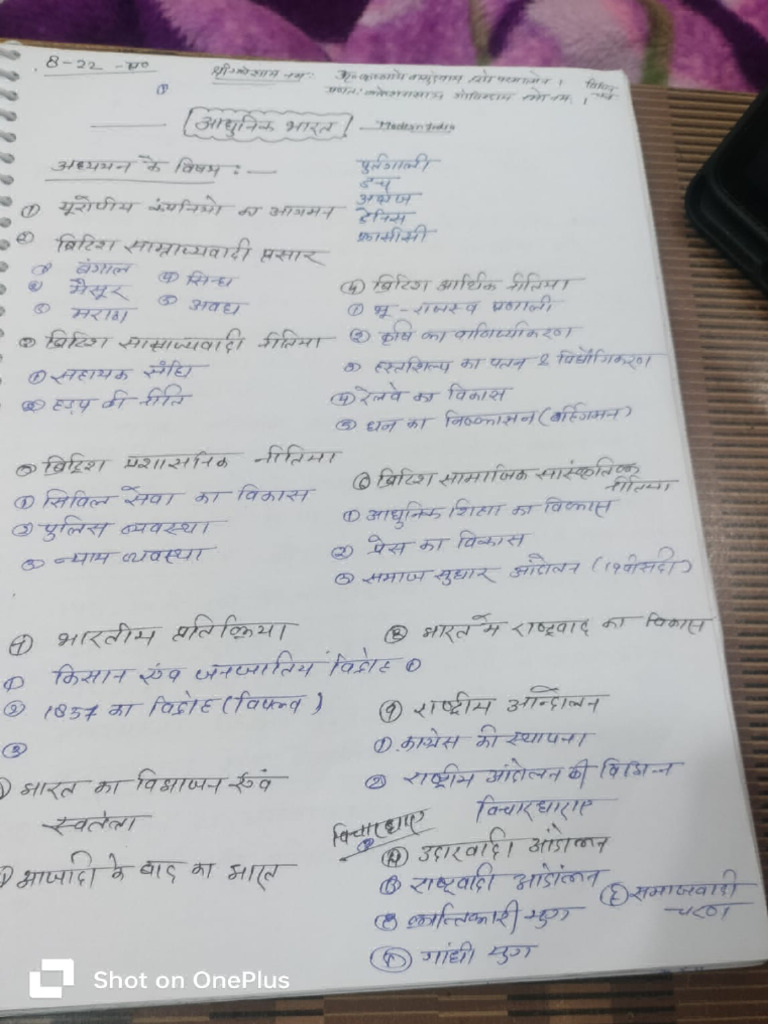 8-22
श्री गणेशाय नमः
आधुनिक भारत Modern India
अध्ययन के विषय :—
① यूरोपीय कंपनियो का आगमन
पुर्तगाली
डच
अंग्रेज
डेनिस
फ्रांसीसी
② ब्रिटिश साम्राज्यवादी प्रसार
① बंगाल ④ सिन्ध
② मैसूर ⑤ अवध
③ मराठा
③ ब्रिटिश साम्राज्यवादी नीतिया
① सहायक संधि
② हड़प की नीति
④ ब्रिटिश आर्थिक नीतिया
① भू-राजस्व प्रणाली
② कृषि का वाणिज्यीकरण
③ हस्तशिल्प का पतन
④ रेलवे का विकास
⑤ धन का निष्कासन (बर्हिगमन)
⑤ ब्रिटिश प्रशासनिक नीतिया
① सिविल सेवा का विकास
② पुलिस व्यवस्था
③ न्याय व्यवस्था
⑥ ब्रिटिश सामाजिक सांस्कृतिक
नीतिया
① आधुनिक शिक्षा का विकास
② प्रेस का विकास
③ समाज सुधार आंदोलन (19वीसदी)
⑦ भारतीय प्रतिक्रिया
① किसान एंव जनजातिय विद्रोह
② 1857 का विद्रोह (विप्लव)
③
⑧ भारत मे राष्ट्रवाद का विकास
⑨ राष्ट्रीय आन्दोलन
① काग्रेस की स्थापना
② राष्ट्रीय आंदोलन की विभिन्न
विचारधाराए
विचारधाए
Ⓐ उदारवादी आंदोलन
Ⓑ राष्ट्रवादी आंदोलन
क्रान्तिकारी युग
गांधी युग
Ⓔ समाजवादी
चरण
भारत का विभाजन एंव
स्वतंत्रता
आजादी के बाद का भारत
Shot on OnePlus